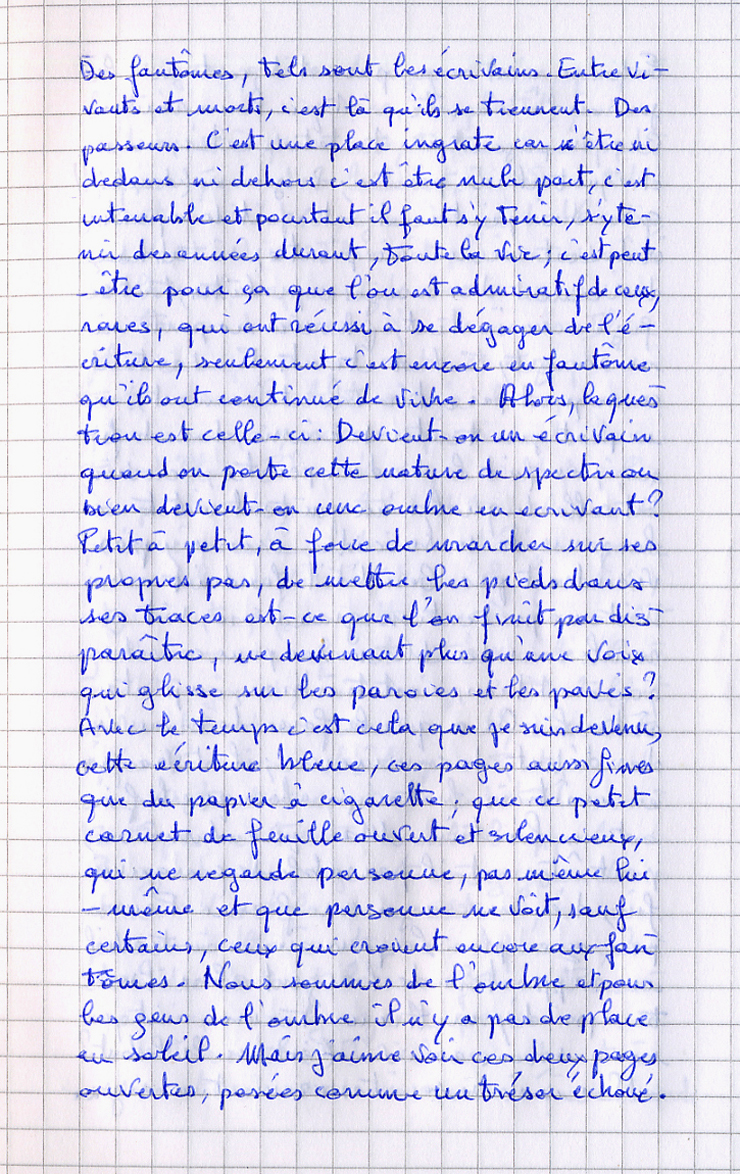 Des fantômes, tels sont les écrivains. Entre vi-
vants et morts, c'est là qu'ils se tiennent. Des
passeurs. C'est une place ingrate car n'être ni
dedans ni dehors c'est être nulle part, c'est
intenable et pourtant il faut s'y tenir, s'y te-
nir des années durant, toute la vie; c'est peut
-être pour ça que l'on est admiratif de ceux,
rares, qui ont réussi à se dégager de l'é-
criture, seulement c'est encore en fantôme
qu'ils ont continué de vivre. Alors, la ques-
tion est celle-ci: Devient-on un écrivain
quand on porte cette nature de spectre ou
bien devient-on une ombre en écrivant?
Petit à petit, à force de marcher sur ses
propres pas, de mettre les pieds dans
ses traces est-ce que l'on finit par dis-
paraître, ne devenant plus qu'une voix
qui glisse sur les parois et les pavés?
Avec le temps c'est cela que je suis devenu,
cette écriture bleue, ces pages aussi fines
que du papier à cigarette; que ce petit
carnet de feuille ouvert et silencieux,
qui ne regarde personne, pas même lui
-même et que personne ne voit, sauf
certains, ceux qui croient encore aux fan-
tômes. Nous sommes de l'ombre et pour
les gens de l'ombre il n'y a pas de place
au soleil. Mais j'aime voir ces deux pages
ouvertes, posées comme un trésor échoué.